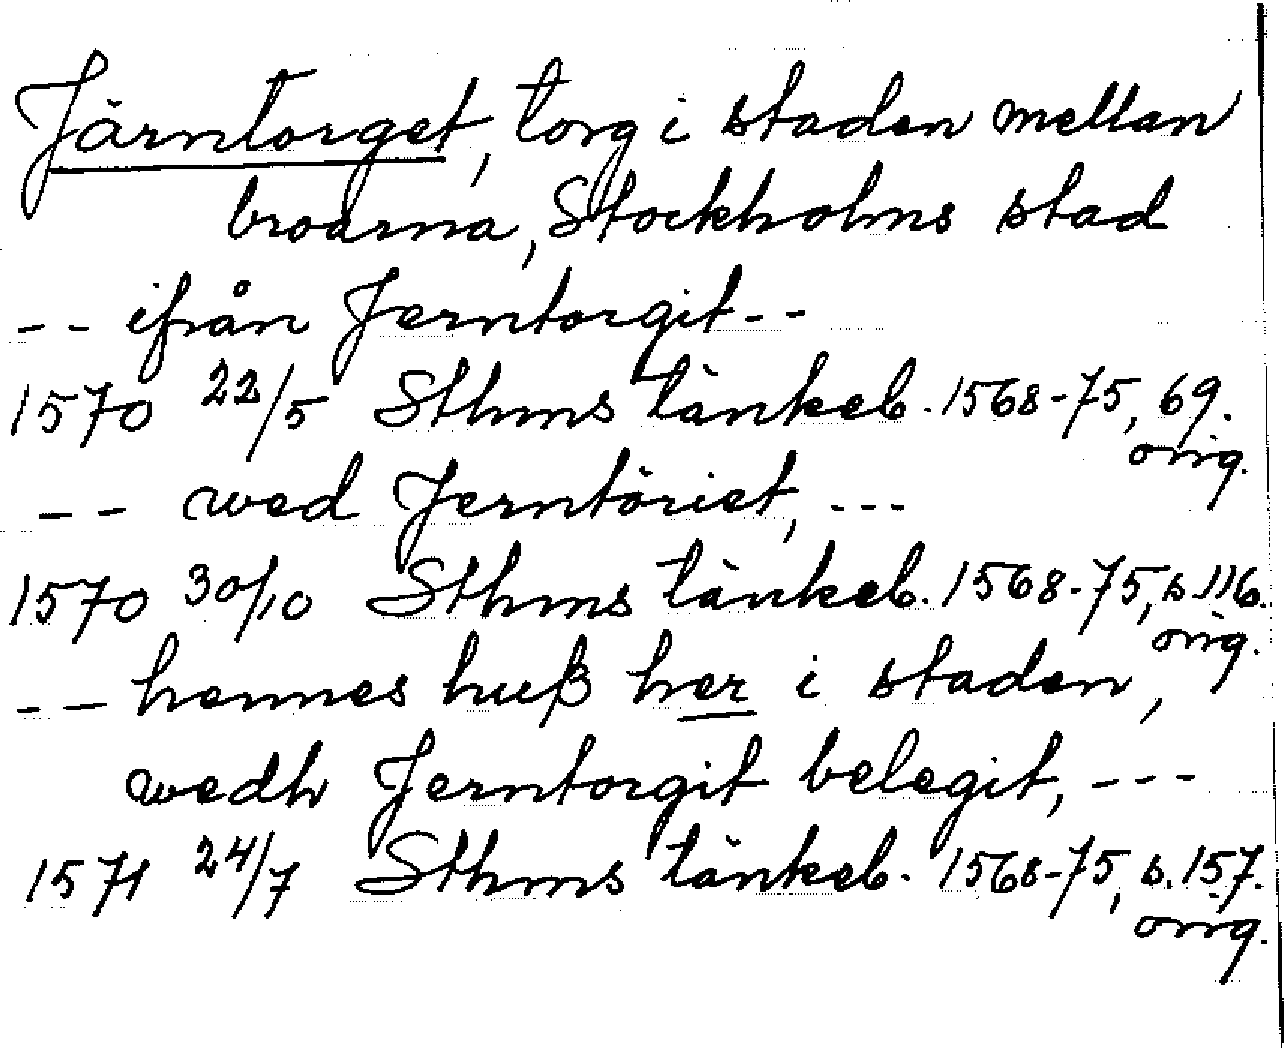 Järntorget, torg i staden mellan
broarna, Stockholms stad
-- ifrån Jerntorgit --
1570 22/5 Sthms tänkeb. 1568-75, 69.
orig.
-- wed Jerntöriet, ---
1570 30/10 Sthms tänkeb. 1568-75, s. 116.
orig.
-- hennes huß her i staden,
wedh Jerntorgit belegit, ---
1571 24/7 Sthms tänkeb. 1568-75, s. 157.
orig.